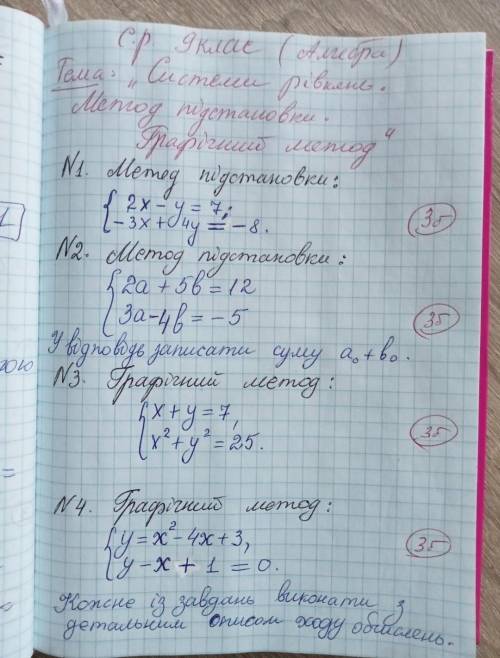 С.р 9 клас (Алгебра)
Тема: „Системи рівнянь.
Метод підстановки.
Графічний метод"
N1. Метод підстановки:
{2x - y = 7;
-3x + 4y = -8.
3б
N2. Метод підстановки:
{2a + 5b = 12
3a - 4b = -5
3б
У відповідь записати суму a₀ + b₀.
N3. Графічний метод:
{x + y = 7,
x² + y² = 25.
3б
N4. Графічний метод:
{y = x² - 4x + 3,
y - x + 1 = 0.
3б
Кожне із завдань виконати з
детальним описом ходу обчислень.
1
=